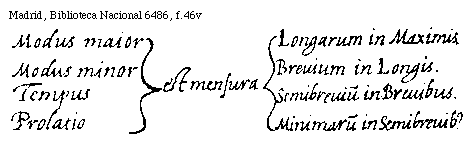 Madrid, Biblioteca Nacional 6486, f.46v
Modus maior
Modus minor
Tempus
Prolatio
est mensura
Longarum in Maximis
Brevium in Longis.
Semibreviū in Brevibus.
Minimarū in Semibrevib?